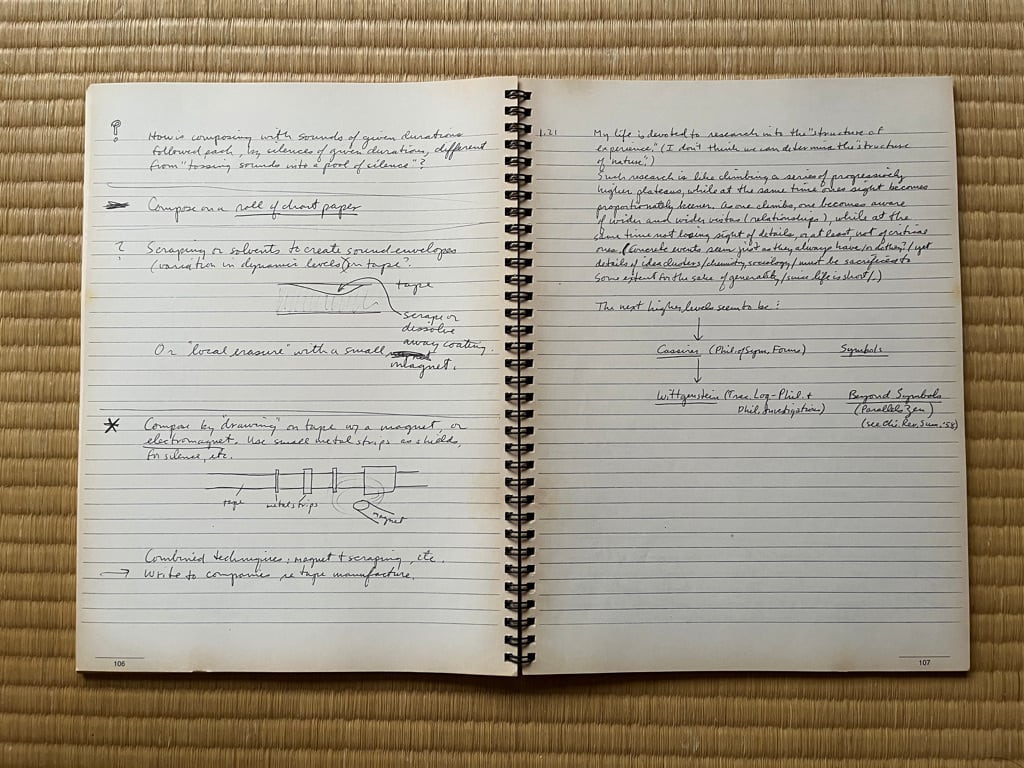 ?
How is composing with sounds of given durations
followed each by silences of given duration, different
from "tossing sounds into a pool of silence"?
Compose on a roll of chart paper
?
Scraping or solvents to create sound envelopes
(variation in dynamic levels) "in tape".
tape
scrape or
dissolve
away coating.
Or "local erasure" with a small
magnet.
* Compose by "drawing" on tape w/ a magnet, or
electromagnet. Use small metal strips as shields,
for silence, etc.
tape
metal strips
magnet
Combined techniques: magnet + scraping, etc.
→ Write to companies re tape manufacture.
106
1.21
My life is devoted to research into the "structure of
experience." (I don't think we can determine the "structure
of nature".)
Such research is like climbing a series of progressively
higher plateaus, while at the same time ones sight becomes
proportionately keener. As one climbs, one becomes aware
of wider and wider vistas (relationships), while at the
same time not losing sight of details, or at least, not of critical
ones. (Concrete events seem just as they always have/or do they?/yet
details of idea clusters/chemistry, sociology,/must be sacrificed to
some extent for the sake of generality/since life is short/.)
The next higher levels seem to be:
Cassirer (Phil. of Sym. Forms) Symbols
Wittgenstein (Trac. Log-Phil. + Beyond Symbols
Phil. Investigations) (Parallels Zen)
(see Chi. Rev. Sum. '58)
107